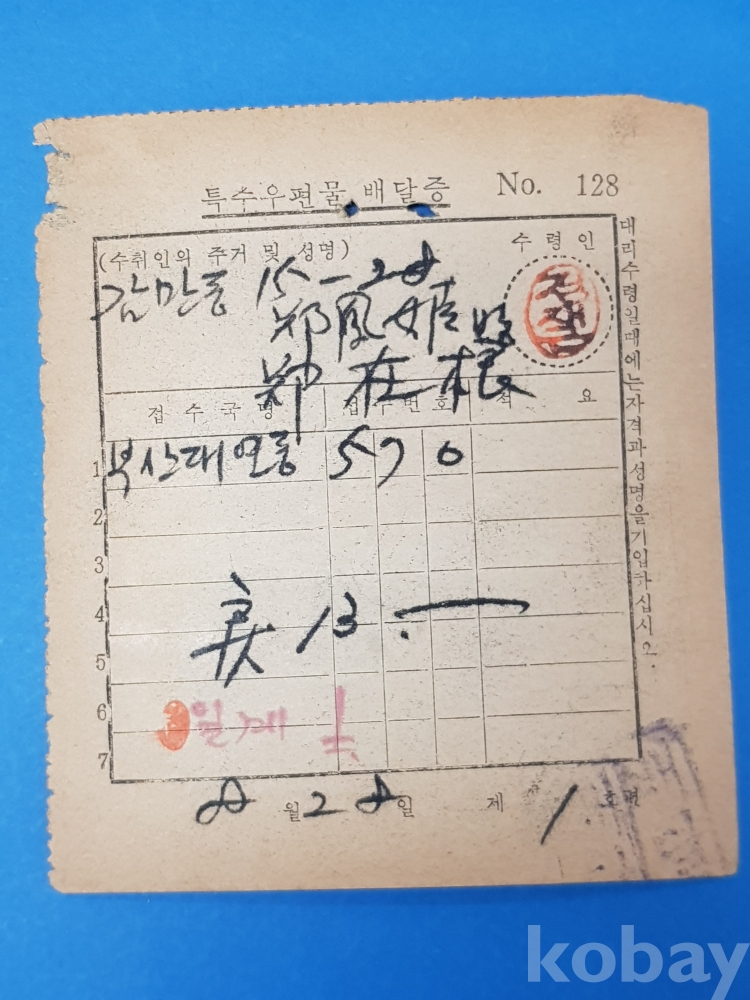 특수우편물 배달증 No. 128
(수취인의 주거 및 성명) 수령인
감만동 15-28
鄭鳳姬
鄭在根
접수국명 접수번호 적요
1 부산대연동 570
2
3
4
13.
5
6
7
8월28일 제1호편
대리수령일때에는자격과성명을기입하십시오.
kobay